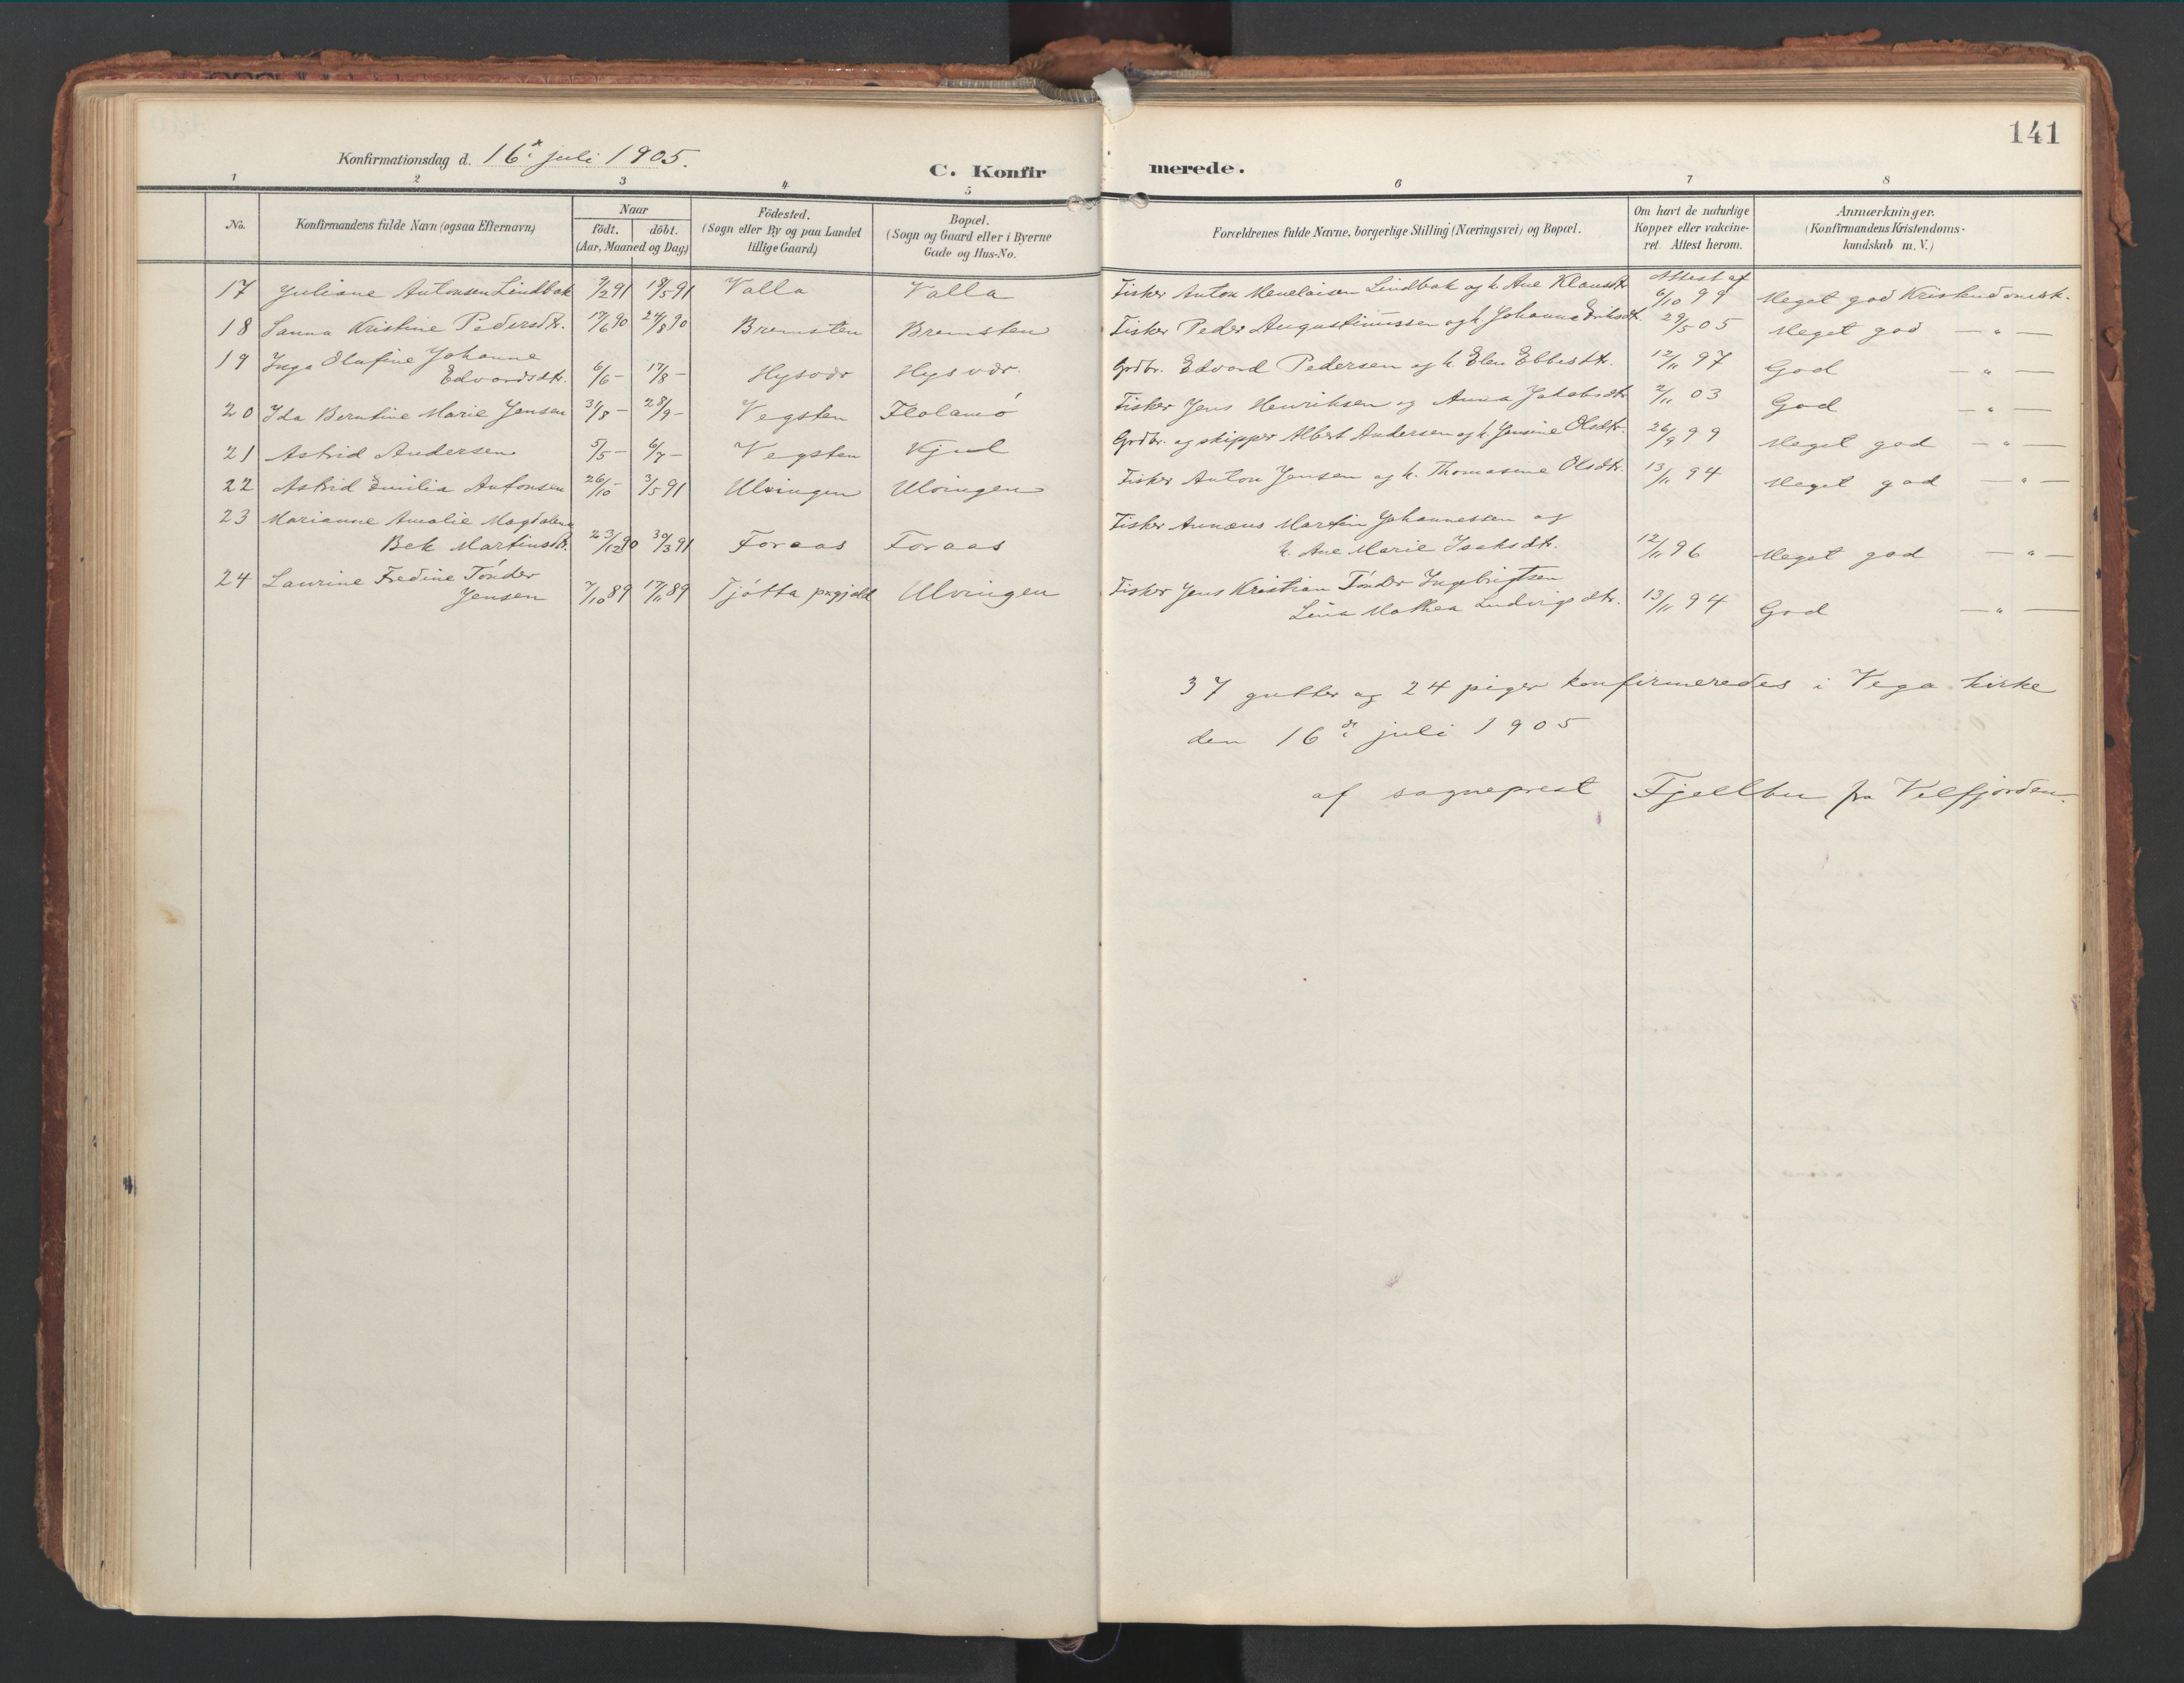 141
Konfirmationsdag d. 16de juli 1905.
C. Konfirmerede.
1 2 3 4 5 6 7 8
No. Konfirmandens fulde Navn (ogsaa Efternavn) Naar födt. döbt. (Aar, Maaned og Dag) Födested. (Sogn eller By og paa Landet tillige Gaard) Bopæl. (Sogn og Gaard eller i Byerne Gade og Hus-No. Forældrenes fulde Navne, borgerlige Stilling (Næringsvei) og Bopæl. Om havt de naturlige Kopper eller vakcineret. Attest herom. Anmærkninger. (Konfirmandens Kristendomskundskab m. V.)
17 Juliane Antonsen Lindbak 9/2 91 18/5 91 Valla Valla Fisker Anton Menelaisen Lindbak og h. Ane Klausdtr. Attest af 6/10 99 Meget god Kristendomsk.
18 Sanna Kristine Pedersdtr. 17/6 90 24/8 90 Bremsten Bremsten Fisker Peder Augustinussen og h. Johanna Eriksdtr. 29/5 05 Meget god — " —
19 Inga Olufine Johanne
Edvardsdtr. 6/6 – 17/8 – Hysvær Hysvær. Grdbr. Edvard Pedersen og h. Elen Ebbesdtr. 12/11 97 God — " —
20 Ida Berntine Marie Jensen 31/8 – 28/9 – Vegsten Flolamö Fisker Jens Henriksen og Anna Jakobsdtr. 2/11 03 God — " —
21 Astrid Andersen 5/5 – 6/7 – Vegsten Kjul Grdbr. og skipper Albert Andersen og h. Jensine Olsdtr. 26/9 99 Meget god — " —
22 Astrid Emilia Antonsen 26/10 – 3/5 91 Ulvingen Ulvingen Fisker Anton Jensen og h. Thomasine Olsdtr. 13/11 94 Meget god — " —
23 Marianne Amalie Magdalena Fisker Annæus Martin Johannessen og
Bek Martinsdtr. 23/12 90 30/3 91 Foraas Foraas h. Ane Marie Isaksdtr. 12/11 96 Meget god — " —
24 Laurine Fredine Tönder Fisker Jens Kristian Tönder Ingebrigtsen
Jensen 7/10 89 17/11 89 Tjötta prgjeld Ulvingen Lina Mathea Ludvigsdtr. 13/11 94 God — " —
37 gutter og 24 piger konfirmeredes i Vega kirke
den 16de juli 1905
af sogneprest Fjellbu fra Velfjorden.